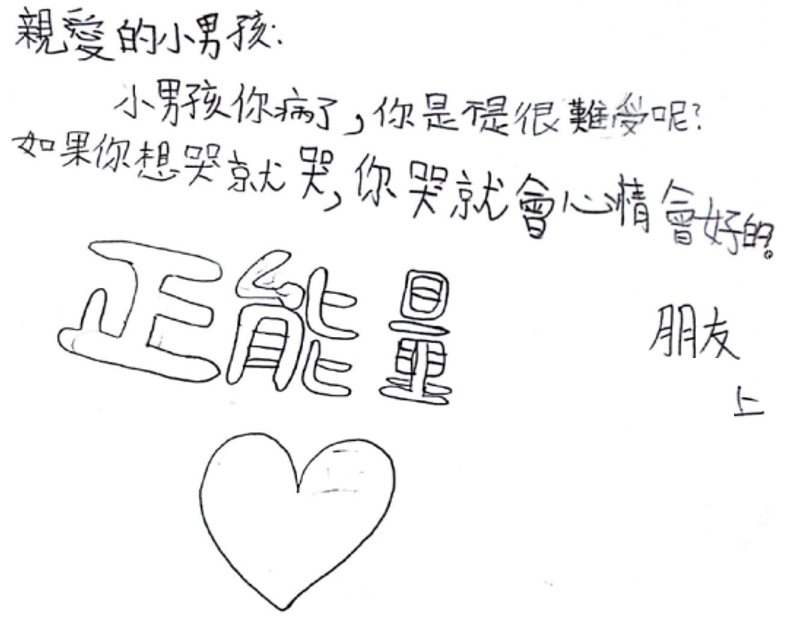 親愛的小男孩:
小男孩你病了,你是不是很難受呢?
如果你想哭就哭,你哭就會心情會好的。
正能量
朋友
上